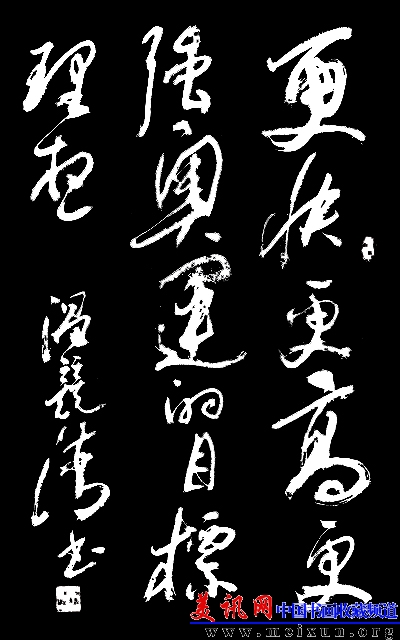 更快更高更
强奥運的目標
理想
温競书
美讯网 中国书画收藏频道
www.meixun.org